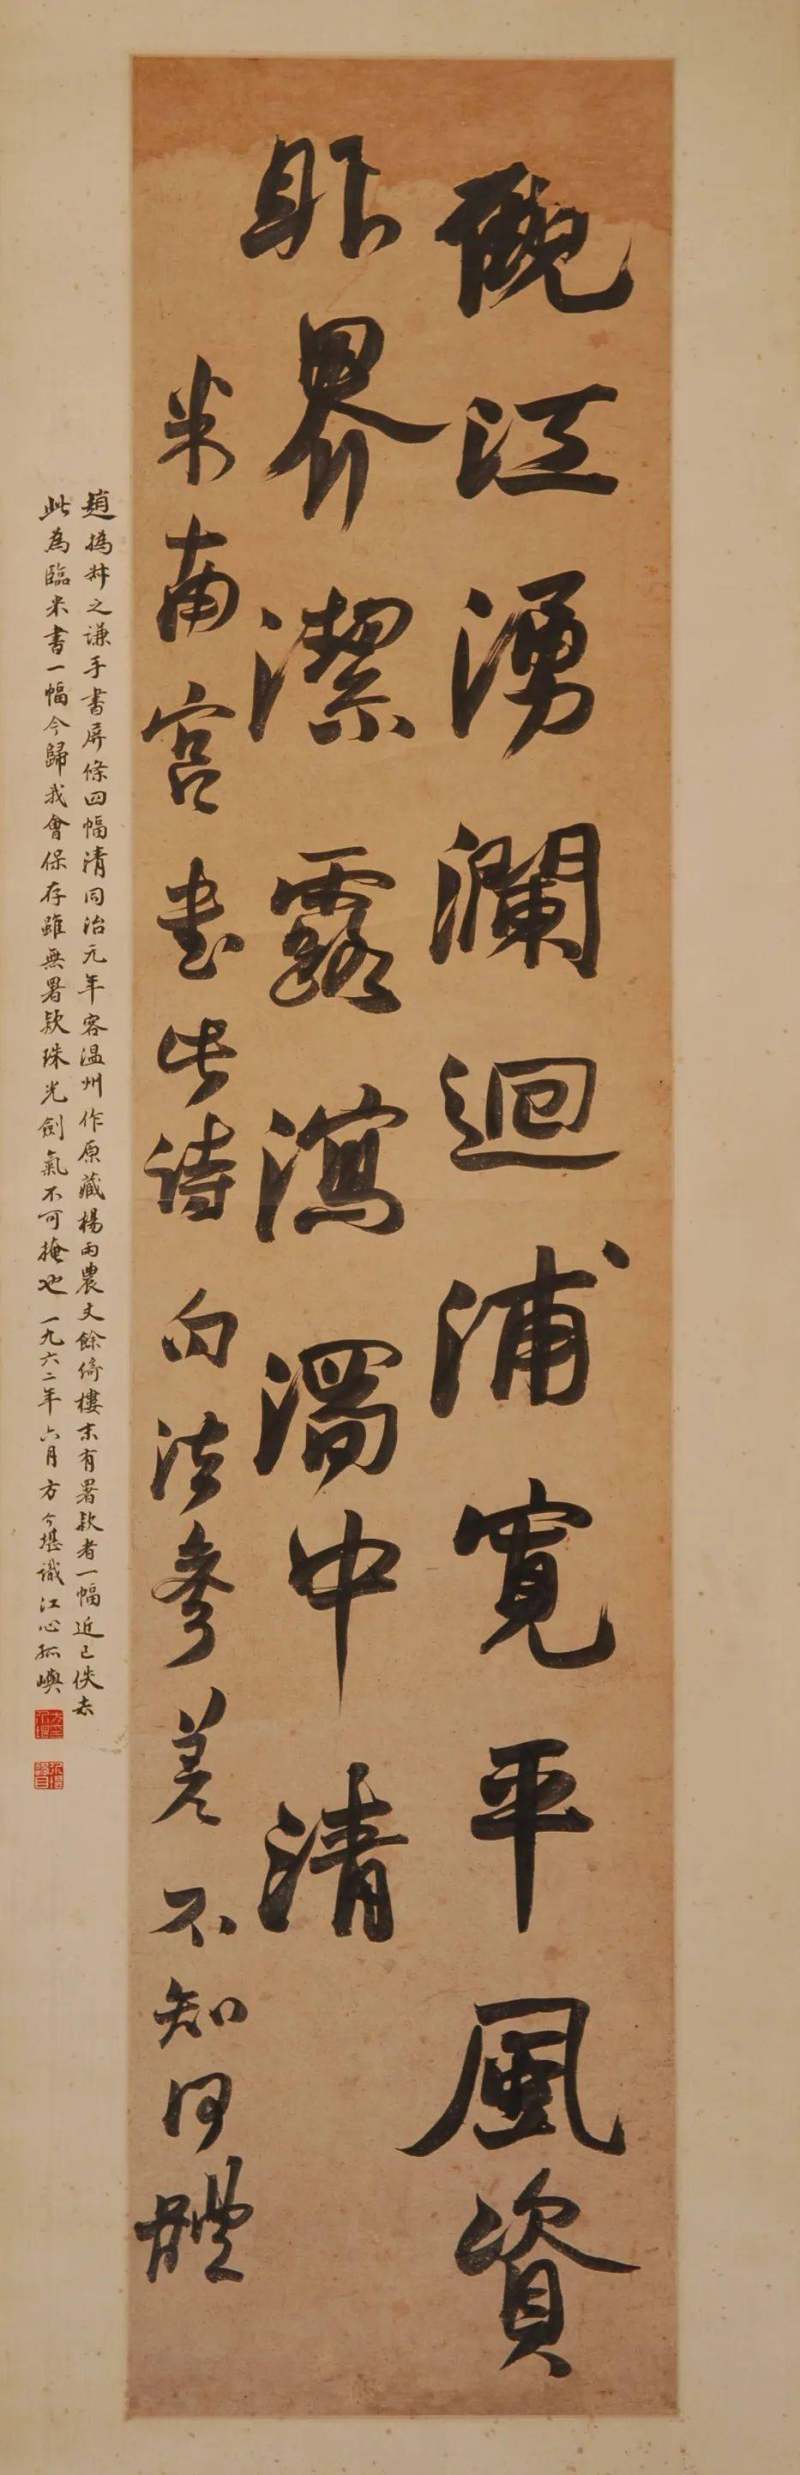 江湧瀾迴浦寬平風資
眼界潔露瀉濁中清
米南宮書此詩句法參差不知何體
趙撝叔之謙手書屏條四幅清同治元年客温州作原藏楊雨農丈餘倚樓末有署款者一幅近已佚去
此為臨米書一幅今歸我會保存雖無署款珠光劍氣不可掩也一九六二年六月方介堪識江心孤嶼